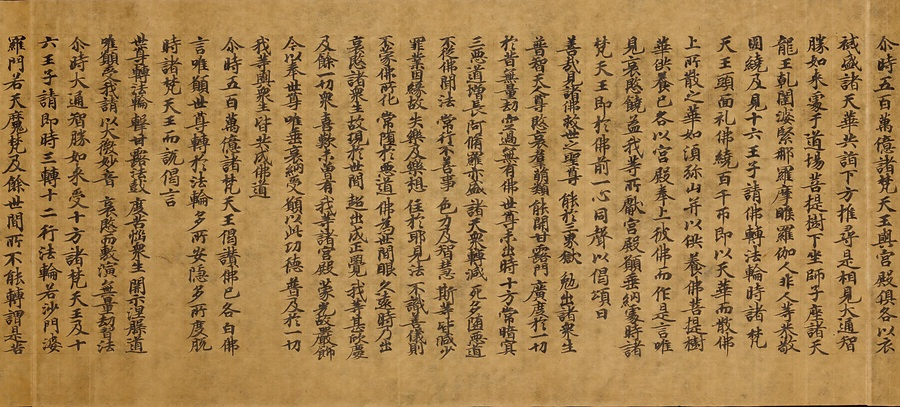 尒時五百萬億諸梵天王與宮殿俱各以衣
祴盛諸天華共詣下方推尋是相見大通智
勝如来處于道場菩提樹下坐師子座諸天
龍王乹闥婆緊那羅摩睺羅伽人非人等恭敬
圍繞及見十六王子請佛轉法輪時諸梵
天王頭面礼佛繞百千帀即以天華而散佛
上所散之華如湏弥山并以供養佛菩提樹
華供養已各以宮殿奉上彼佛而作是言唯
見哀愍饒益我等所獻宮殿願垂納處時諸
梵天王即於佛前一心同聲以偈頌曰
善哉見諸佛 救世之聖尊 能於三界獄 勉出諸衆生
普智天人尊 愍哀群萌類 能開甘露門 廣度於一切
於昔無量劫 空過無有佛 世尊未出時 十方常暗冥
三惡道增長 阿脩羅亦盛 諸天衆轉減 死多墮惡道
不從佛聞法 常行不善事 色力及智慧 斯等皆減少
罪業因緣故 失樂及樂想 住於耶見法 不識善儀則
不蒙佛所化 常墮於惡道 佛為世間眼 久遠時乃出
哀愍諸衆生 故現於世間 超出成正覺 我等甚欣慶
及餘一切衆 喜歎未曾有 我等諸宮殿 蒙光故嚴飾
今以奉世尊 唯垂哀納受 願以此功德 普及於一切
我等與衆生 皆共成佛道
尒時五百萬億諸梵天王偈讚佛已各白佛
言唯願世尊轉於法輪多所安隱多所度脫
時諸梵天王而說偈言
世尊轉法輪 擊甘露法鼓 度苦惱衆生 開示涅槃道
唯願受我請 以大微妙音 哀愍而敷演 無量劫習法
尒時大通智勝如来受十方諸梵天王及十
六王子請即時三轉十二行法輪若沙門婆
羅門若天魔梵及餘世間所不能轉謂是苦